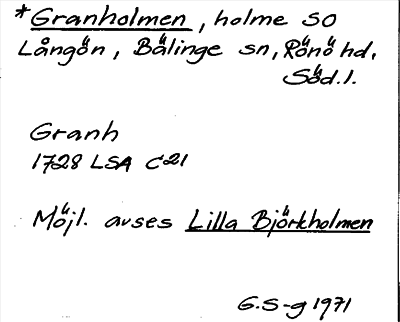 *Granholmen, holme SO
Långön, Bälinge sn, Rönö hd,
Söd.l.
Granh
1728 LSA C21
Möjl. avses Lilla Björkholmen
G.S-g 1971